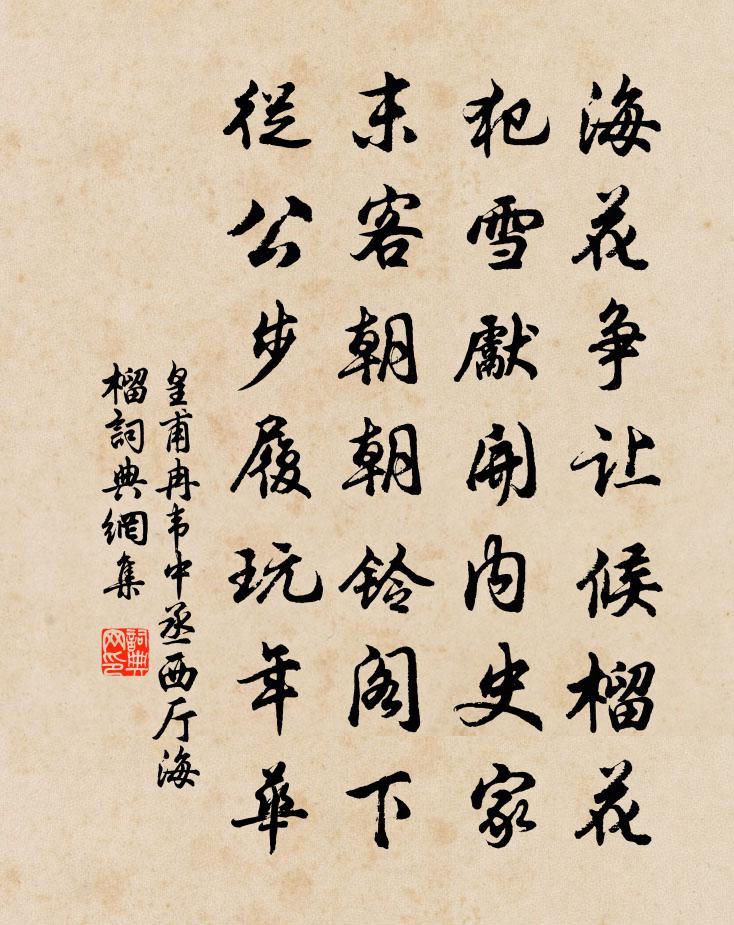 海花争让候榴花
犯雪獻開内史家
末客朝朝铃阁下
從公步履玩年華
皇甫冉韦中丞西厅海
榴詞典網集
詞典网印